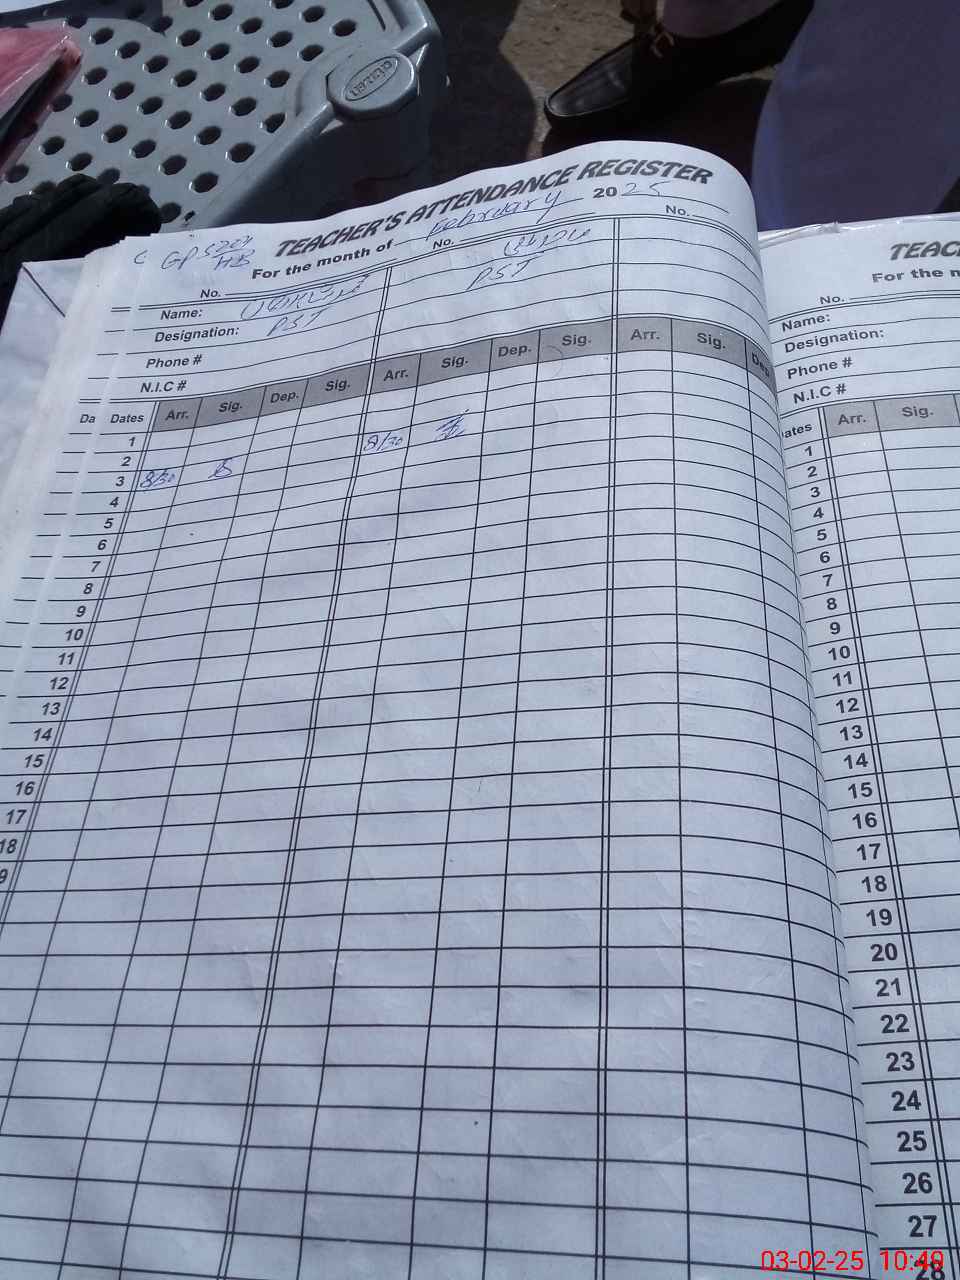 citizen
TEACHER'S ATTENDANCE REGISTER
For the month of February 2025
No. No. No.
Name:
Designation: PST PST
Phone #
N.I.C #
Da Dates Arr. Sig. Dep. Sig. Arr. Sig. Dep. Sig. Arr. Sig. Dep.
1
2
3 8/30 8/30
4
5
6
7
8
9
10
11
12
13
14
15
16
17
18
9
TEAC
For the m
No.
Name:
Designation:
Phone #
N.I.C #
ates Arr. Sig.
1
2
3
4
5
6
7
8
9
10
11
12
13
14
15
16
17
18
19
20
21
22
23
24
25
26
27
28
03-02-25 10:49